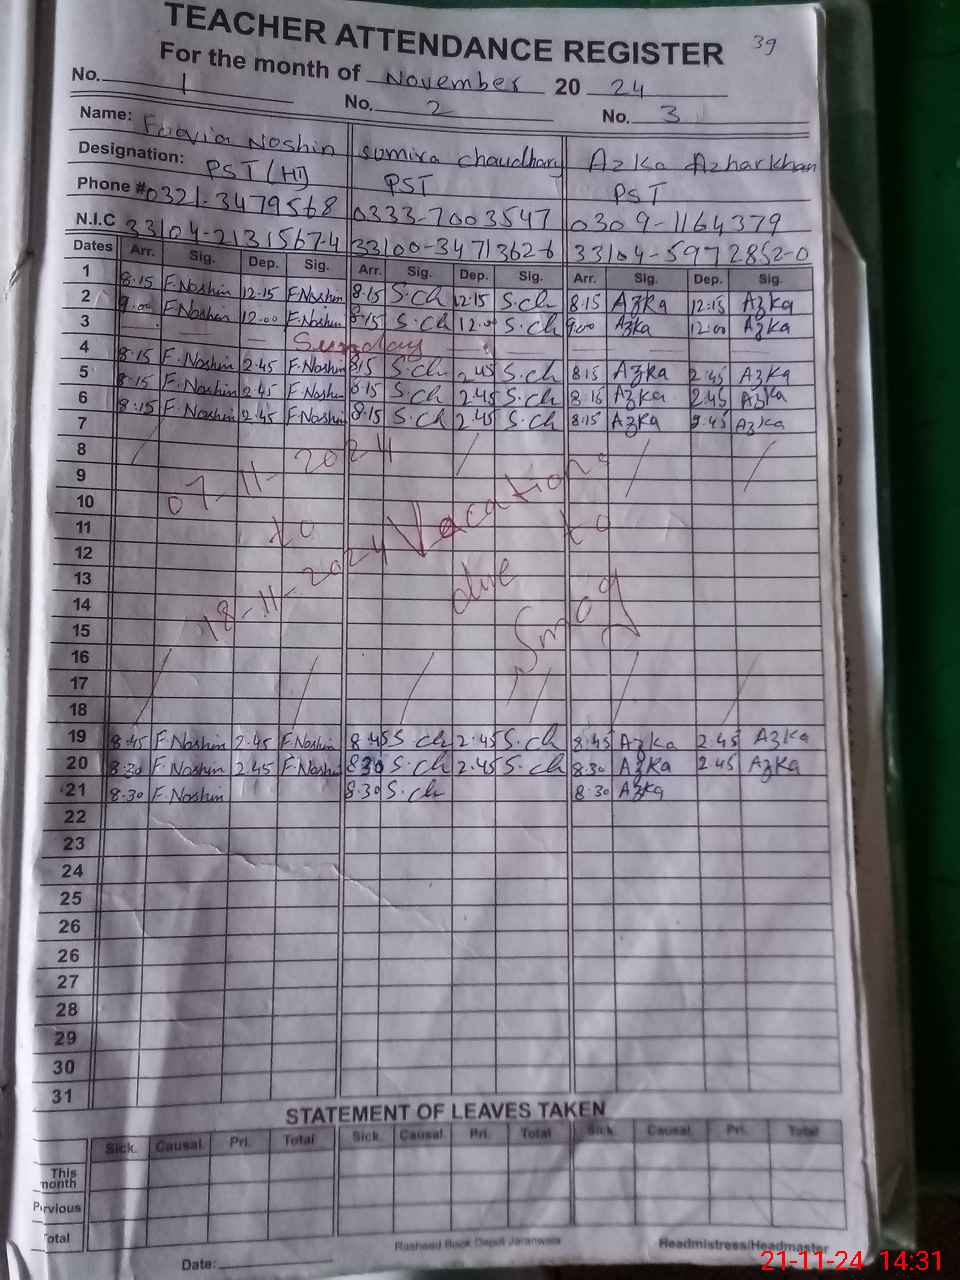 TEACHER ATTENDANCE REGISTER 39
For the month of November 20 24
No. 1 No. 2 No. 3
Name: Fouvia Noshin Sumira chaudhary Azka Azharkhan
Designation: PST (HT) PST PST
Phone # 0321-3479568 0333-7003547 0309-1164379
N.I.C 33104-2131567-4 33100-3471362-6 33104-5972852-0
Dates Arr. Sig. Dep. Sig. Arr. Sig. Dep. Sig. Arr. Sig. Dep. Sig.
1 8.15 F.Noshin 12.15 F.Noshin 8.15 S.ch 12.15 S.ch 8.15 Azka 12.15 Azka
2 9.00 F.Noshin 12.00 F.Noshin 8.15 S.ch 12.00 S.ch 9.00 Azka 12.00 Azka
3 Sunday
4 8.15 F.Noshin 2.45 F.Noshin 8.15 S.ch 2.45 S.ch 8.15 Azka 2.45 Azka
5 8.15 F.Noshin 2.45 F.Noshin 8.15 S.ch 2.45 S.ch 8.15 Azka 2.45 Azka
6 8.15 F.Noshin 2.45 F.Noshin 8.15 S.ch 2.45 S.ch 8.15 Azka 2.45 Azka
7
8
9
10
11
12
13
14
15
16
17
18
07-11-2024
to
18-11-2024 Vacations
due to
Smog
19 8.45 F.Noshin 2.45 F.Noshin 8.45 S ch 2.45 S.ch 8.45 Azka 2.45 Azka
20 8.30 F.Noshin 2.45 F.Noshin 8.30 S.ch 2.45 S.ch 8.30 Azka 2.45 Azka
21 8.30 F.Noshin 8.30 S.ch 8.30 Azka
22
23
24
25
26
26
27
28
29
30
31
STATEMENT OF LEAVES TAKEN
Sick. Causal. Pri. Total Sick. Causal. Pri. Total Sick. Causal. Pri. Total
This month
Pervious
Total
Date: Rasheed Book Depot Jaranwala Headmistress/Headmaster
21-11-24 14:31